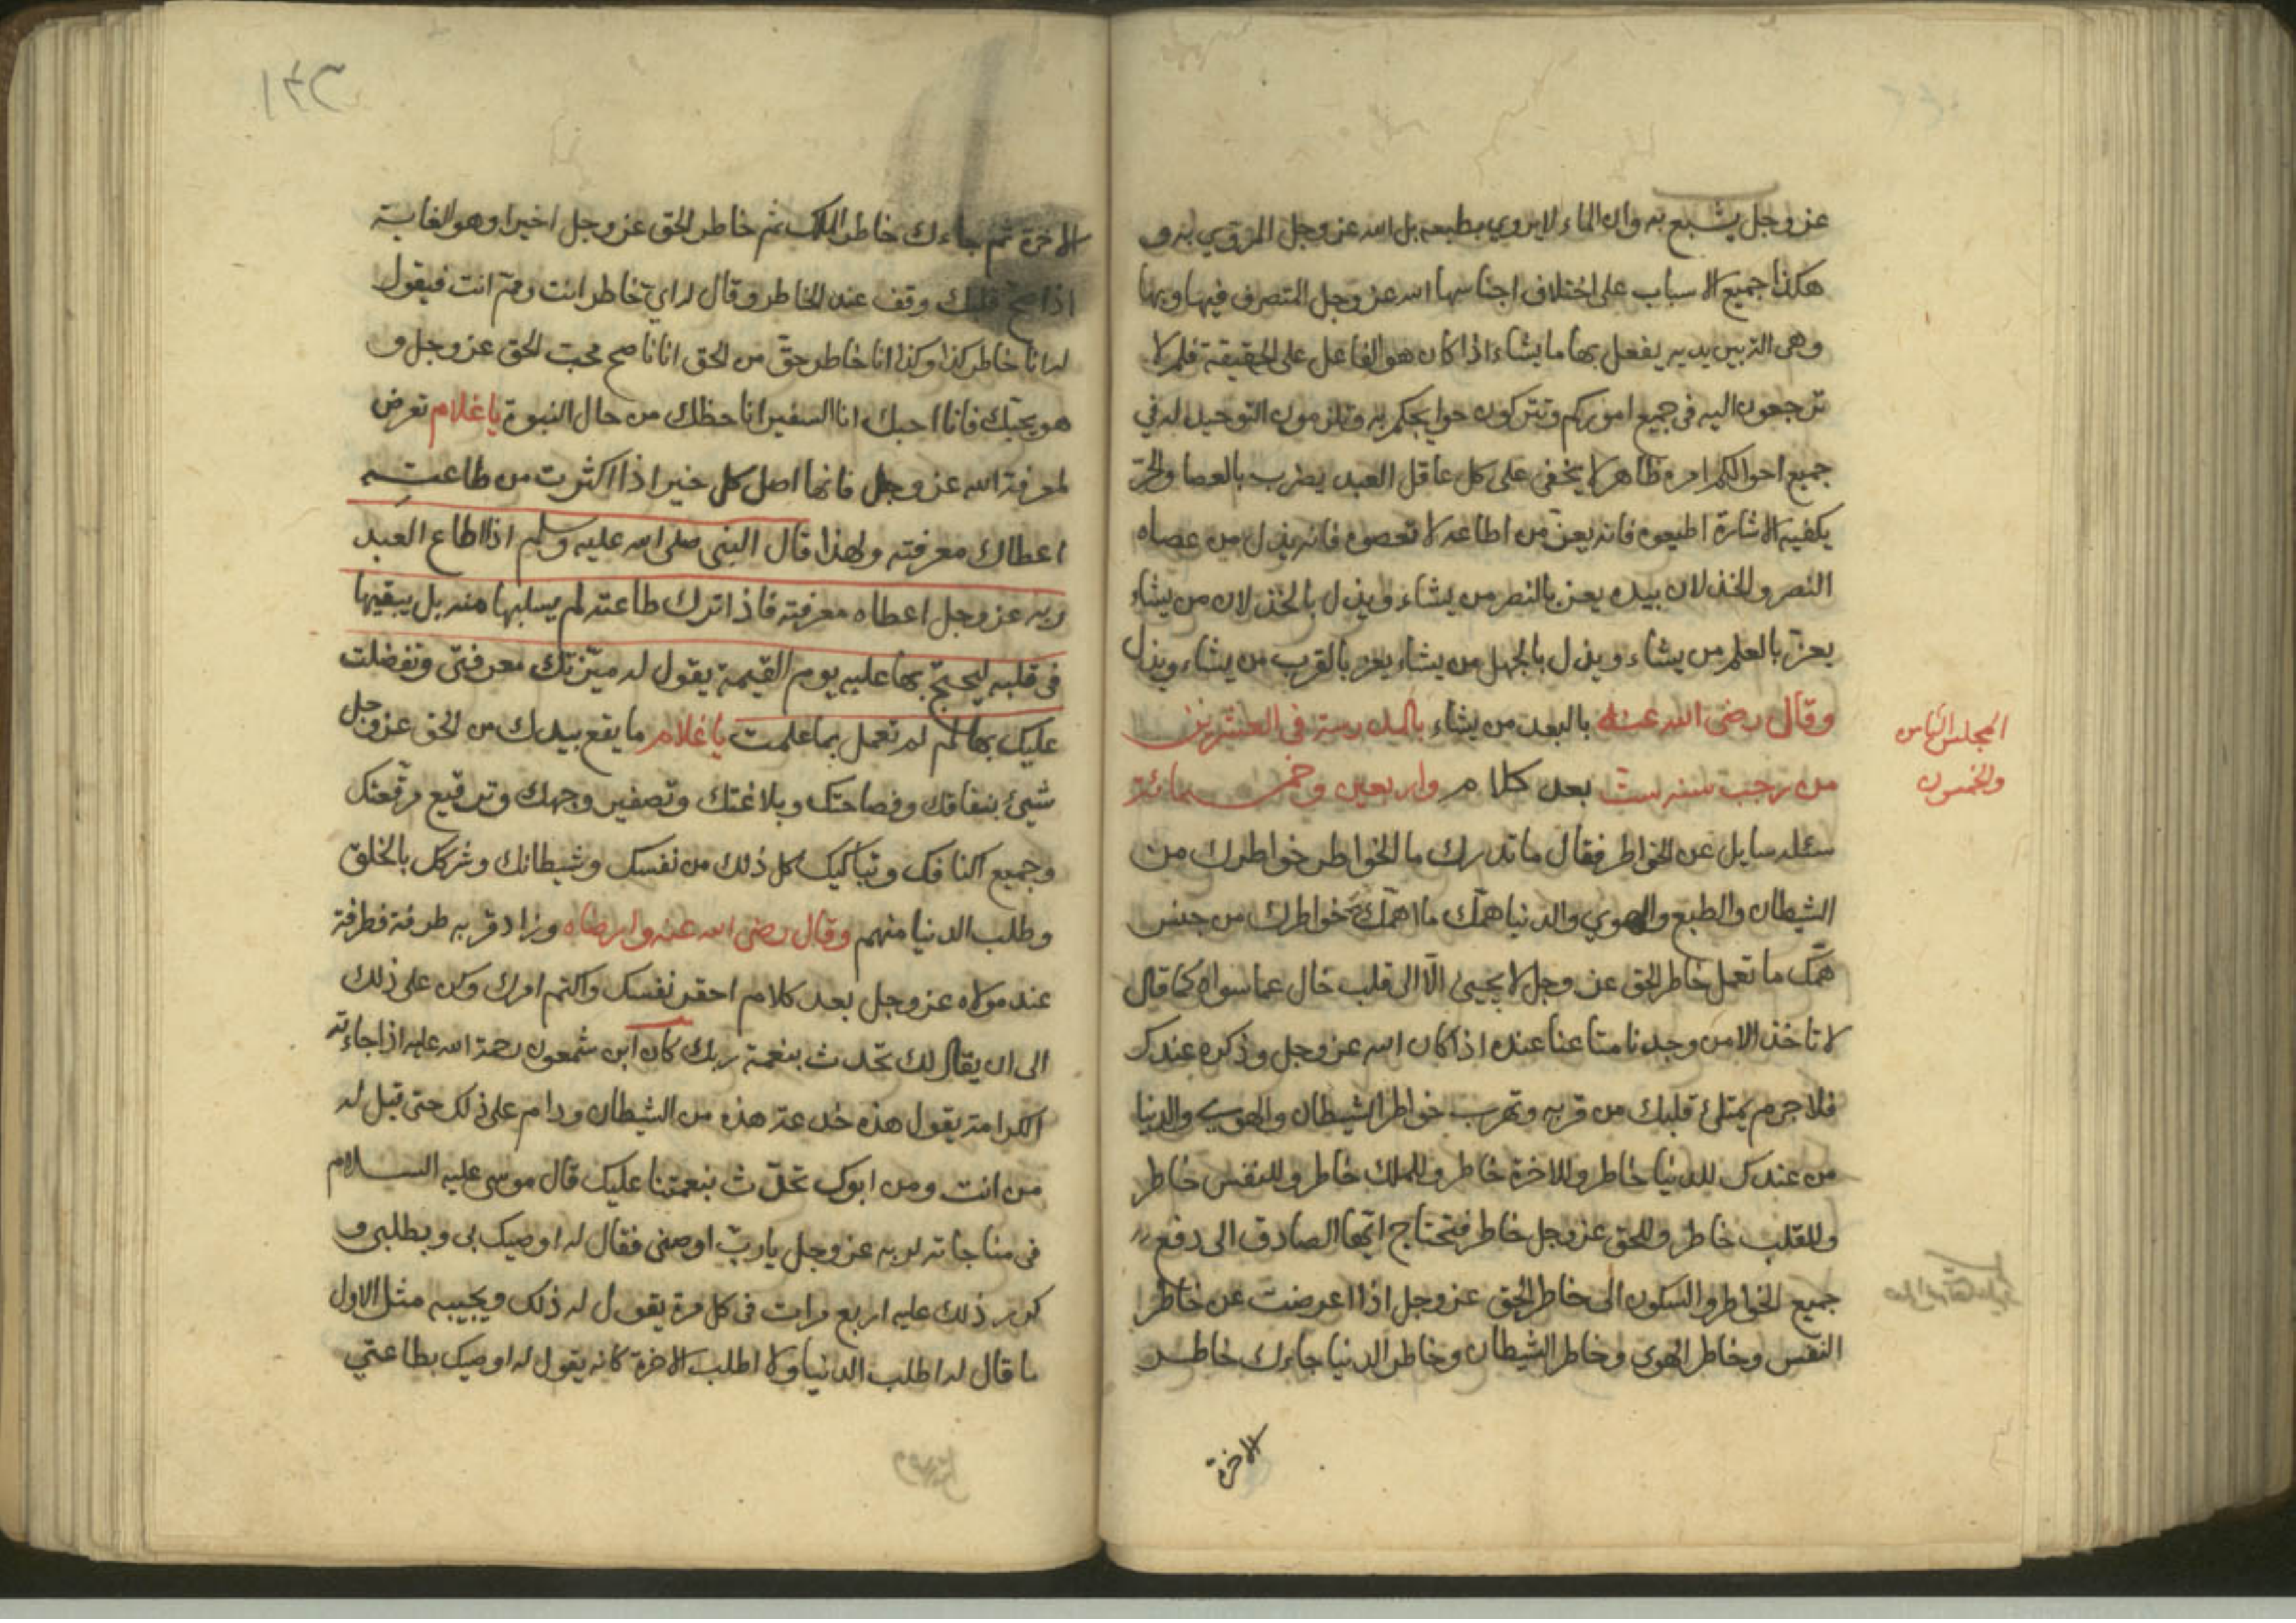 عز وجل يشبع به وان الماء لا يروي بطبعه بل الله عز وجل المروي به و
هكذا جميع الاسباب على اختلاف اجناسها الله عز وجل المتصرف فيها وبها
وهى الة بين يديه يفعل بها ما يشاء اذا كان هو الفاعل على الحقيقة فلم لا
ترجعون اليه فى جميع اموركم وتتركون حوايجكم به وتلزمون التوحيد له في
جميع احوالكم امره ظاهر لا يخفى على كل عاقل العبد يضرب بالعصا والحر
يكفيه الاشارة اطيعوه فانه يعز من اطاعه لا تعصوه فانه يذل من عصاه
النصر والخذلان بيده يعز بالنصر من يشاء ويذل بالخذلان من يشاء
يعز بالعلم من يشاء ويذل بالجهل من يشاء يعز بالقرب من يشاء ويذل
وقال رضى الله عنه بالبعد من يشاء بالمدرسة فى العشرين
المجلس الثامن
والخمسون
من رجب سنة ست بعد كلام واربعين وخمسمائة
سئله سايل عن الخواطر فقال ما تدريك ما الخواطر خواطرك من
الشيطان والطبع والهوي والدنيا همك ما اهمك خواطرك من جنس
همك ما تعمل خاطر الحق عز وجل لا يجيئ الا الى قلب خال عما سواه كما قال
لا تاخذ الا من وجدنا متاعنا عنده اذا كان الله عز وجل وذكره عندك
فلا جرم يمتلئ قلبك من قربه وتهرب خواطر الشيطان والهوى والدنيا
من عندك للدنيا خاطر وللاخرة خاطر وللملك خاطر وللنفس خاطر
وللقلب خاطر وللحق عز وجل خاطر فتحتاج ايها الصادق الى دفع
جميع الخواطر والسكون الى خاطر الحق عز وجل اذا اعرضت عن خاطر
النفس وخاطر الهوى وخاطر الشيطان وخاطر الدنيا جاءك خاطر
الاخرة
١٤٢
الاخرة ثم جاءك خاطر الملك ثم خاطر الحق عز وجل اخيرا وهو الغاية
اذا صح قلبك وقف عند الخاطر وقال له اي خاطر انت ومم انت فيقول
له انا خاطر كذا وكذا انا خاطر حق من الحق انا ناصح محب الحق عز وجل و
هو يحبك فانا احبك انا السفير انا حظك من حال النبوة يا غلام تعرض
لمعرفة الله عز وجل فانها اصل كل خير اذا اكثرت من طاعته
اعطاك معرفته ولهذا قال النبى صلى الله عليه وسلم اذا اطاع العبد
ربه عز وجل اعطاه معرفته فاذا ترك طاعته لم يسلبها منه بل يبقيها
فى قلبه ليحتج بها عليه يوم القيمة يقول له ميزتك معرفتى وتفضلت
عليك بها لم لم تعمل بما علمت يا غلام ما يقع بيدك من الحق عز وجل
شيئ بنفاقك وفصاحتك وبلاغتك وتصفير وجهك وترقيع مرقعتك
وجميع اكتافك وتباكيك كل ذلك من نفسك وشيطانك وشركك بالخلق
وطلب الدنيا منهم وقال رضى الله عنه وارضاه وزاد قربه طرفة فطرفة
عند مولاه عز وجل بعد كلام احقر نفسك واكتم امرك وكن على ذلك
الى ان يقال لك تحدث بنعمة ربك كان ابن شمعون رحمة الله عليه اذا جاءته
الكرامة يقول هذه خدعة هذه من الشيطان ودام على ذلك حتى قيل له
من انت ومن ابوك تحدث بنعمتنا عليك قال موسى عليه السلام
فى مناجاته لربه عز وجل يا رب اوصنى فقال له اوصيك بى وبطلبى و
كرر ذلك عليه اربع مرات فى كل مرة يقول له ذلك ويجيبه مثل الاول
ما قال له اطلب الدنيا ولا اطلب الاخرة كانه يقول له اوصيك بطاعتي